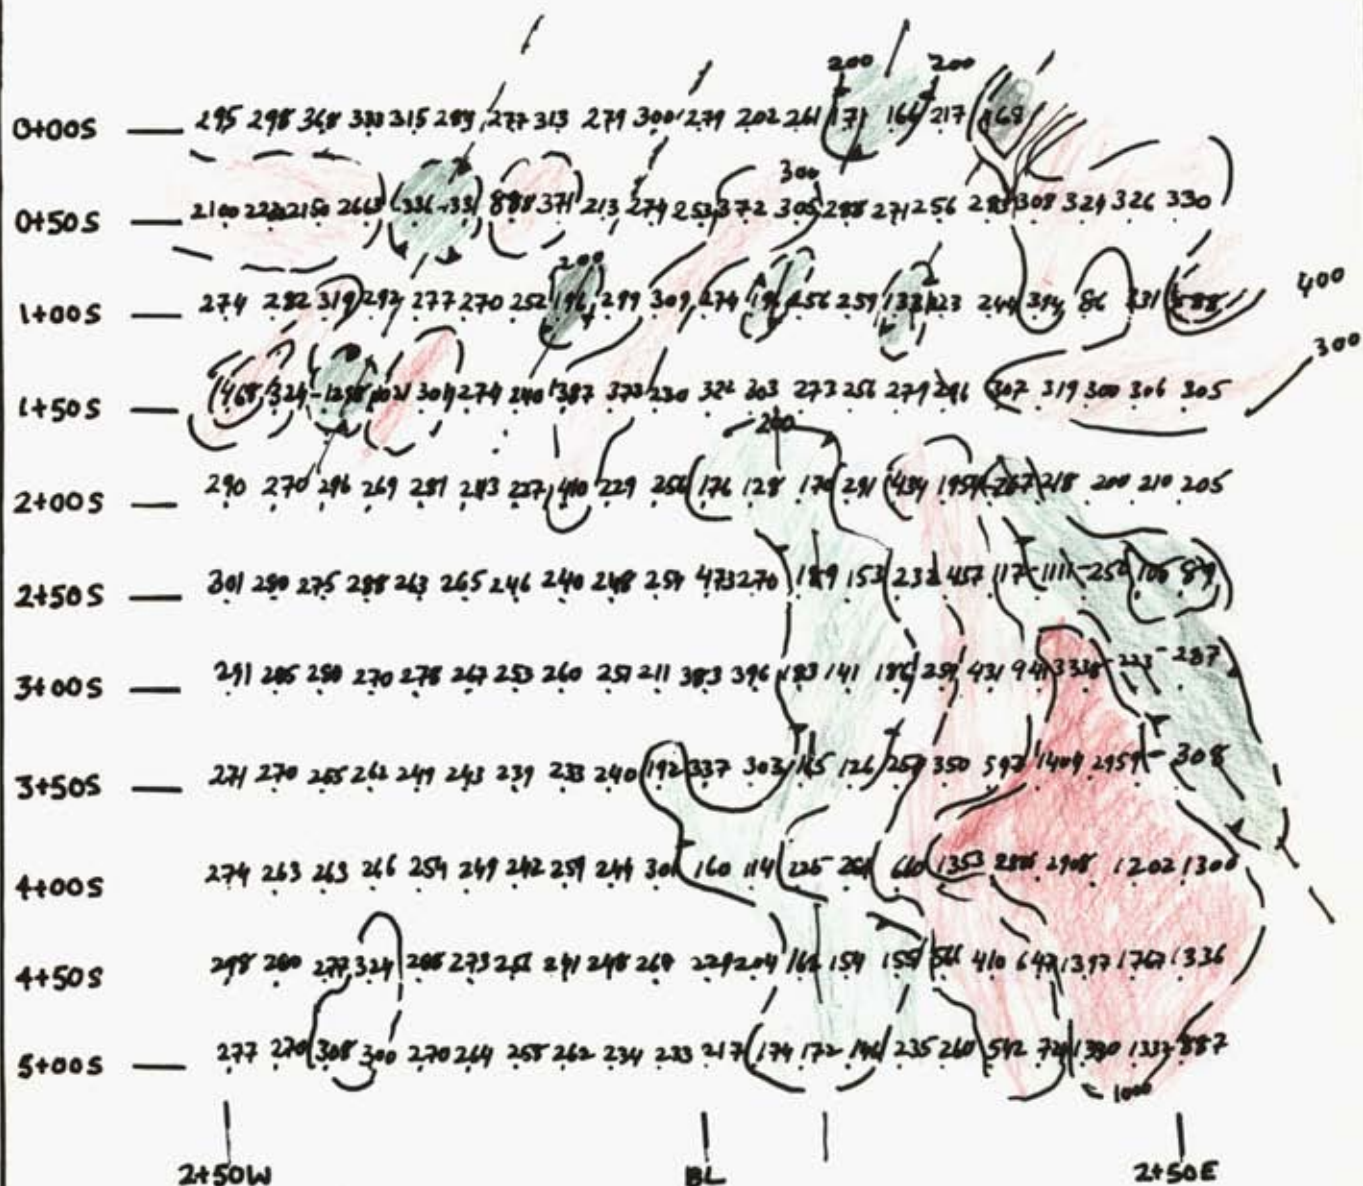 200 200
0+00S 295 298 368 315 277 313 279 300 279 202 261 171 166 217 168
300
0+50S 2100 2150 888 371 213 274 253 372 305 288 271 256 308 324 326 330
200
1+00S 274 282 319 292 277 270 252 196 299 309 274 256 259 86 400
300
1+50S 468 324 304 274 240 387 373 230 322 303 273 256 279 286 307 319 300 306 305
200
2+00S 290 270 296 269 281 283 227 410 229 256 176 128 170 291 434 218 200 210 205
2+50S 301 280 275 288 263 265 246 240 248 254 473 270 189 153 232 457 117 -1111 -250
3+00S 291 285 280 270 278 267 253 260 257 211 383 396 183 141 186 259 431 941 3338 -223 -287
3+50S 271 270 265 262 249 243 239 233 240 192 337 303 115 126 257 350 597 1409 2959 -308
4+00S 274 263 263 266 254 249 242 259 244 301 160 114 225 264 660 1353 2908 1202 1300
4+50S 298 280 277 324 288 273 248 264 229 204 162 154 155 566 410 647 1397 1767 1336
5+00S 277 270 308 300 270 264 258 262 234 233 217 174 172 146 235 260 542 1332 887
1000
2+50W BL 2+50E